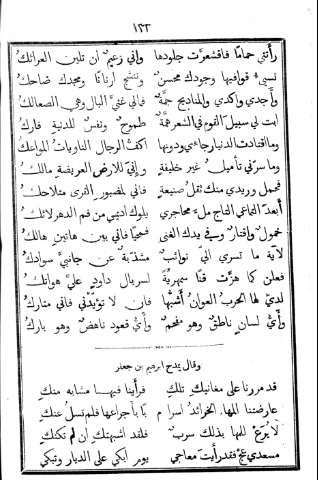 ١٢٣
رأتني حماما فاقشعرت جلودها وإني زعيم ان تلين العرائك
نسي قوافيها وجودك محسن وننتج ارثاقا ومجدك ضاحك
وأجدي وأكدي والمناديح جمة فاني غني البال وهي الصعالك
ابت لي سبيل القوم في الشعر همة طموح ونفس للدنية فارك
وما اقتادت الدنيا رجاءي ودونها اكف الرجال التاويات المواعك
وما سرني تأميل غير خليفة وإني للارض العريضة مالك
فحمل وريدي منك ثقل صنيعة فاني لمصبور القرى متلاحك
أبعد التماعي التاج ملء محاجري يلوك اديمي من فم الدهر لائك
خمول وإقتار وفي يدك الغنى فحيا فاني بين هاتين هالك
لآية ما تسري الي نوائب مشذبة عن جانبي سوادك
فعلن كما هزت قنا سمهرية لسربال داود علي هواتك
لدي لها الحرب العوان أشبها فان لا تؤيدني فاني متارك
وأي لسان ناطق وهو مفحم وأي قعود ناهض وهو بارك
وقال يمدح ابرهيم بن جعفر
قد مررنا على مغانيك تلك فرأينا فيها مشابه منك
عارضتنا المها الخرائد اسرا م با بأجراعها فلم نسل عنك
لا يرع للمها بذلك سرب فلقد اشبهتك ان لم تكنك
مسعدي عج فقد رأيت معاجي يوم ابكي على الديار وتبكي